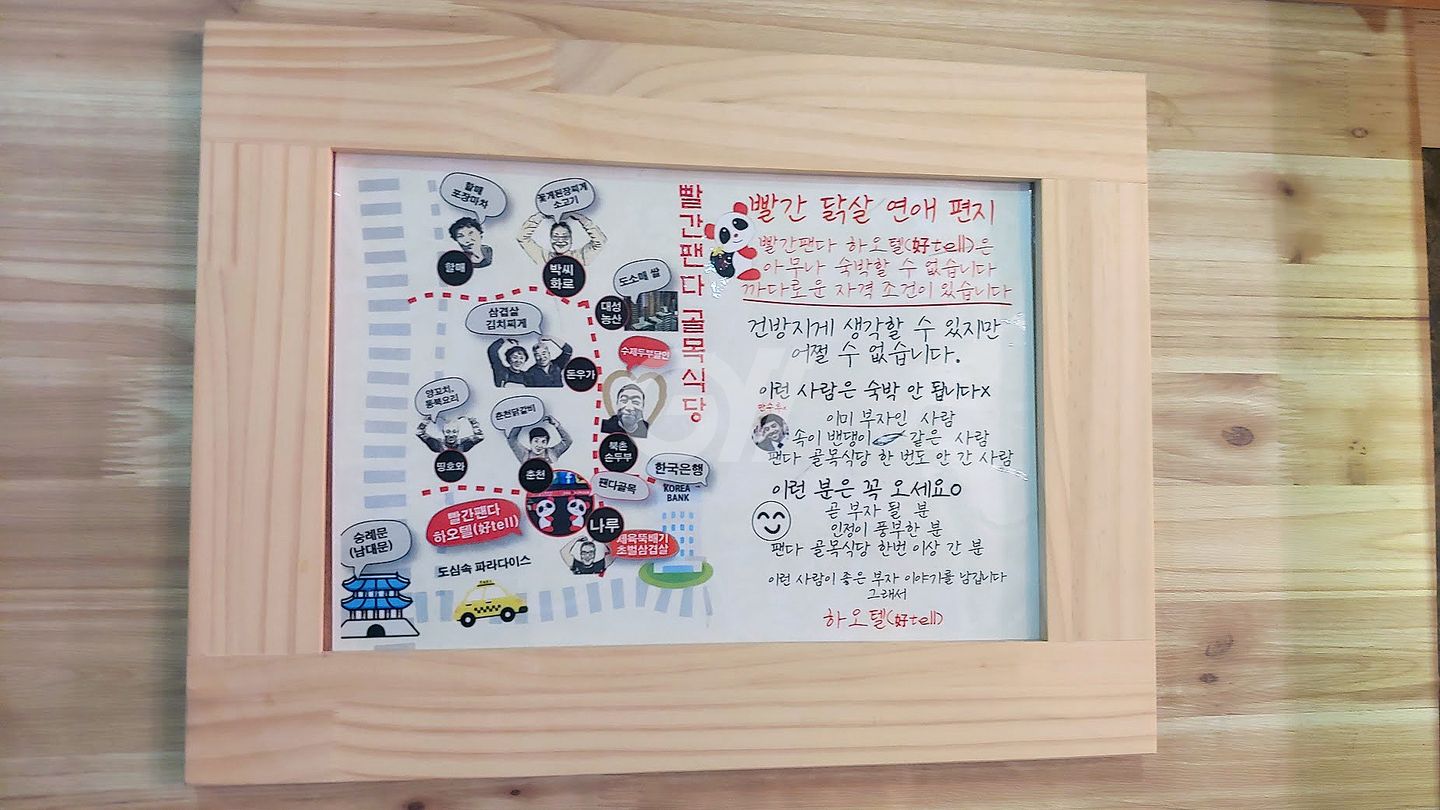 할매
포장마차
할매
꽃게된장찌개
소고기
박씨
화로
도소매 쌀
대성
농산
삼겹살
김치찌개
돈우가
수제두부달인
북촌
손두부
양꼬치,
동북요리
띵호와
춘천닭갈비
춘천
팬다골목
한국은행
KOREA
BANK
나루
제육뚝배기
초벌삼겹살
빨간팬다
하오텔(好tell)
숭례문
(남대문)
도심속 파라다이스
빨간팬다 골목식당
빨간 닭살 연애 편지
빨간팬다 하오텔(好tell)은
아무나 숙박할 수 없습니다
까다로운 자격 조건이 있습니다
건방지게 생각할 수 있지만
어쩔 수 없습니다.
이런 사람은 숙박 안 됩니다x
이미 부자인 사람
속이 밴댕이 같은 사람
팬다 골목식당 한 번도 안 간 사람
이런 분은 꼭 오세요O
곧 부자 될 분
인정이 풍부한 분
팬다 골목식당 한번 이상 간 분
이런 사람이 좋은 부자 이야기를 남깁니다
그래서
하오텔(好tell)